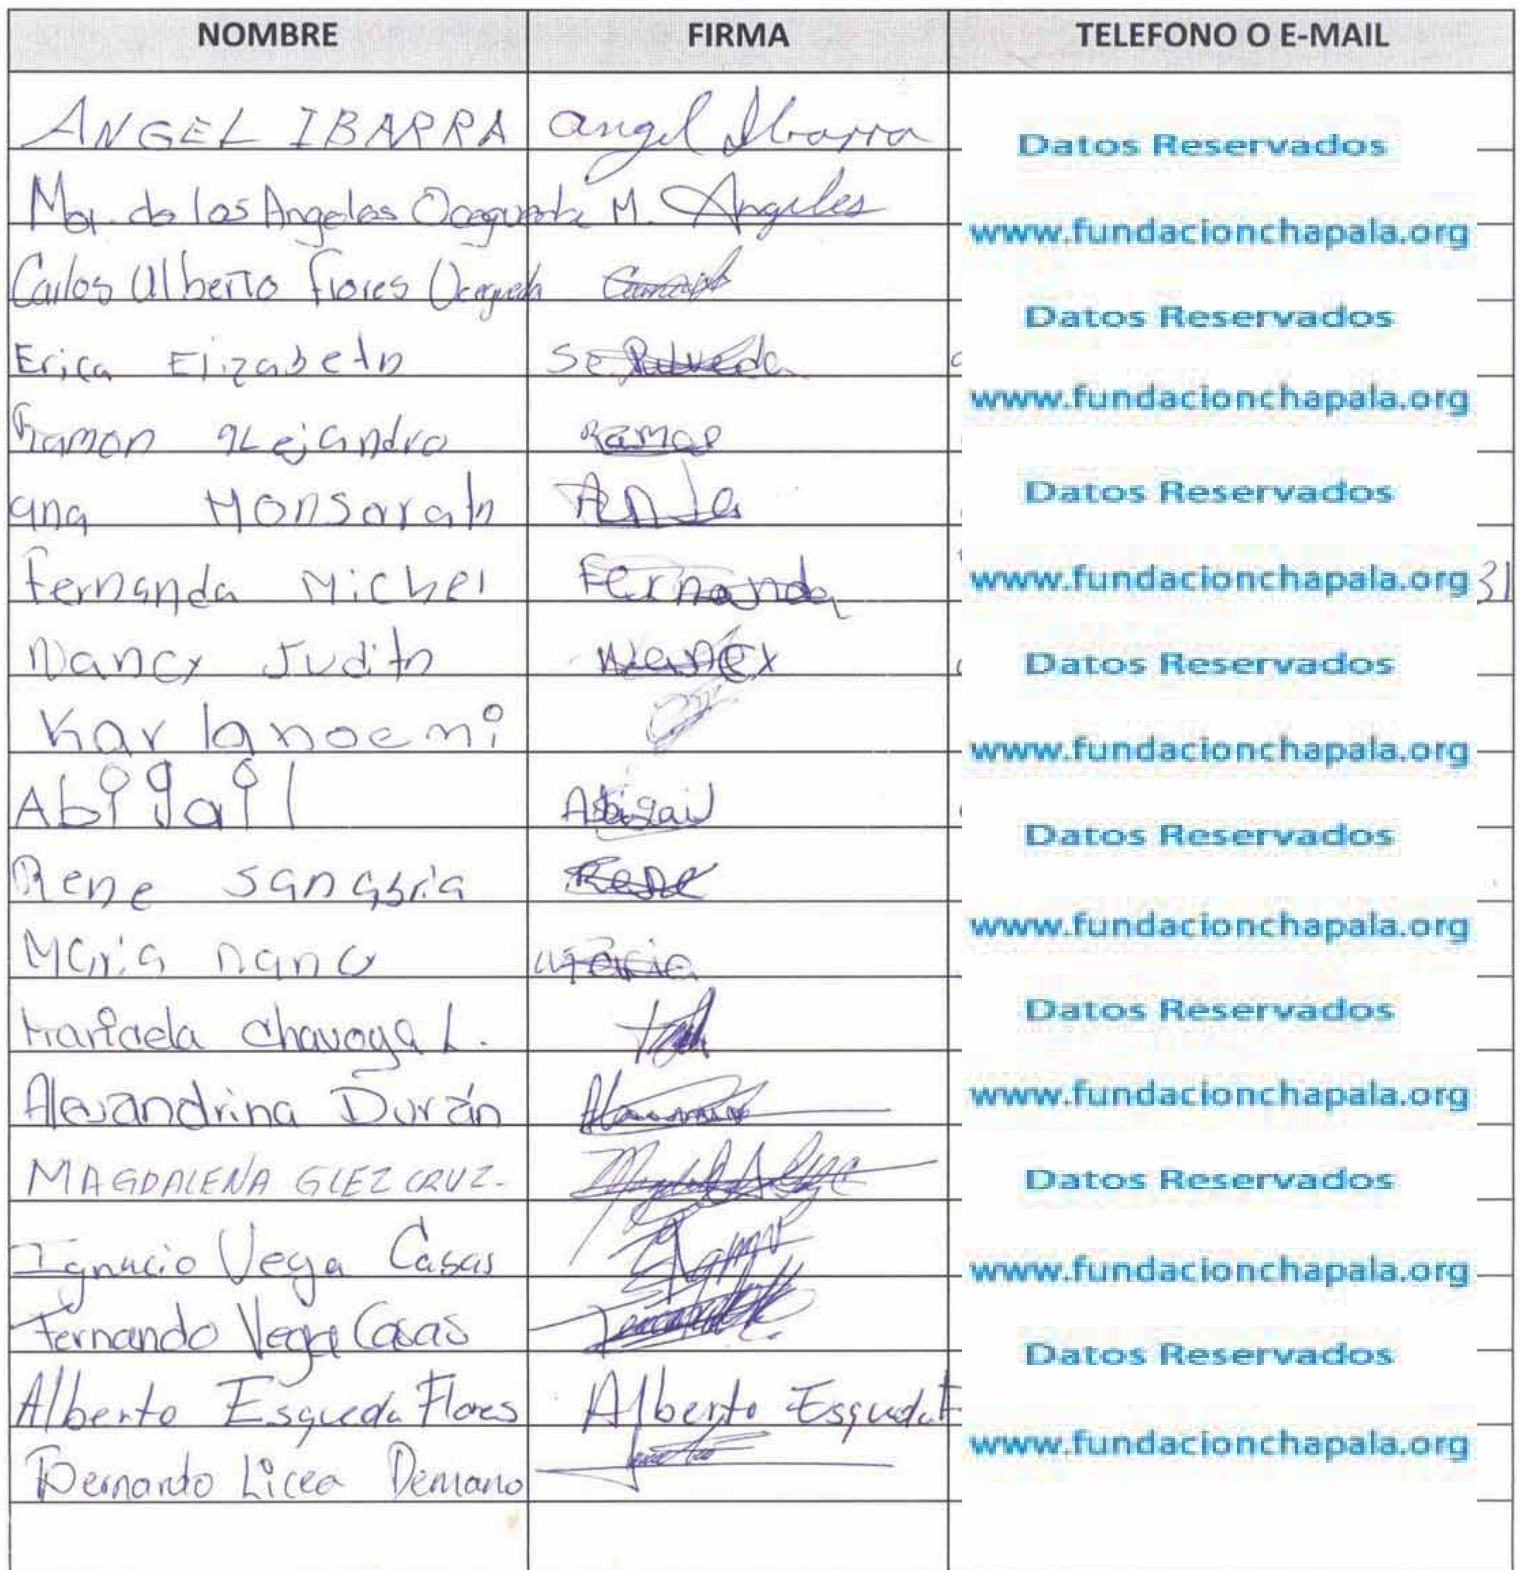 NOMBRE FIRMA TELEFONO O E-MAIL
ANGEL IBARRA angel Ibarra Datos Reservados
Ma. de los Angeles Ocegueda M. Angeles www.fundacionchapala.org
Carlos Alberto Flores Ocegueda
Datos Reservados
Erica Elizabeth Sepulveda
www.fundacionchapala.org
Ramon alejandro Ramon
Datos Reservados
ana Monsarath Ana
Fernanda Michel Fernanda www.fundacionchapala.org 31
Nancy Judith Nancy Datos Reservados
Karlanoemi www.fundacionchapala.org
Abigail Abigail Datos Reservados
Rene Sanabria Rene
www.fundacionchapala.org
Maria nano Maria
Maricela Chavoya L. Datos Reservados
Alexandrina Durán www.fundacionchapala.org
MAGDALENA GLEZ CRUZ. Datos Reservados
Ignacio Vega Casas www.fundacionchapala.org
Fernando Vega Casas Datos Reservados
Alberto Esqueda Flores Alberto Esqueda F
www.fundacionchapala.org
Bernardo Licea